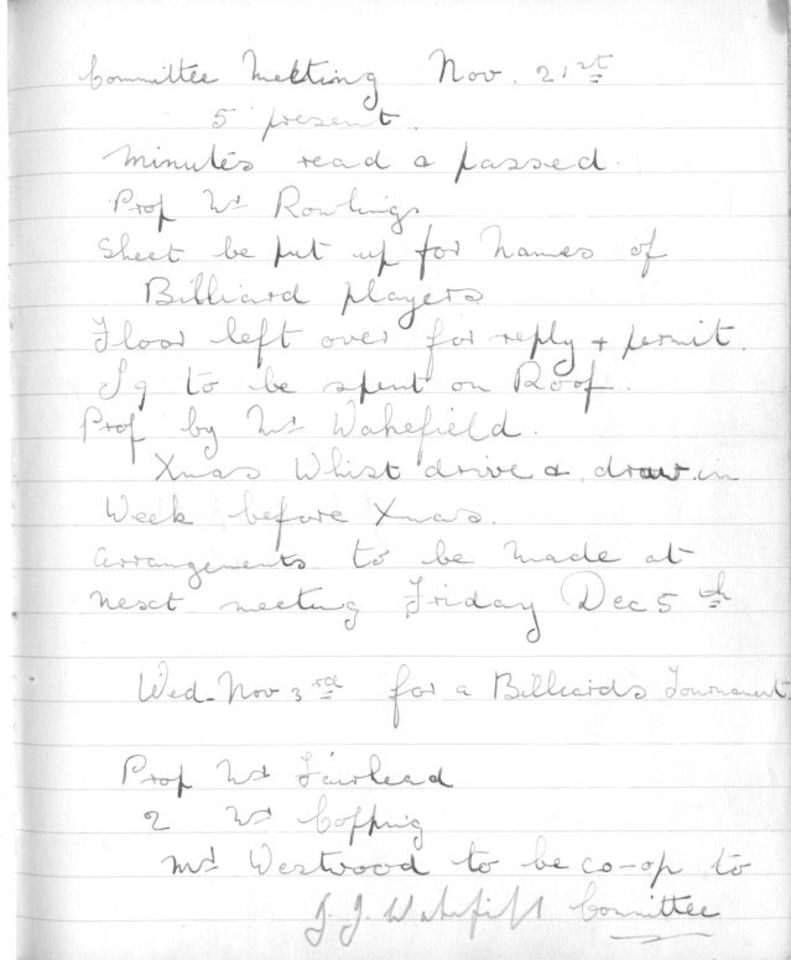 Committee Meeting Nov. 21st
5 present.
Minutes read & passed.
Prop Mr Rowlings
Sheet be put up for names of
Billiard players
Floor left over for reply & permit.
£9 to be spent on Roof.
Prop by Mr Wakefield.
Xmas Whist drive & draw in
Week before Xmas.
Arrangements to be made at
next meeting Friday Dec 5th
Wed. Nov 3rd for a Billiards Tournament.
Prop Mr Fairlead
2 Mr Copping
Mr Westwood to be co-op to
J. J. Wakefield Committee